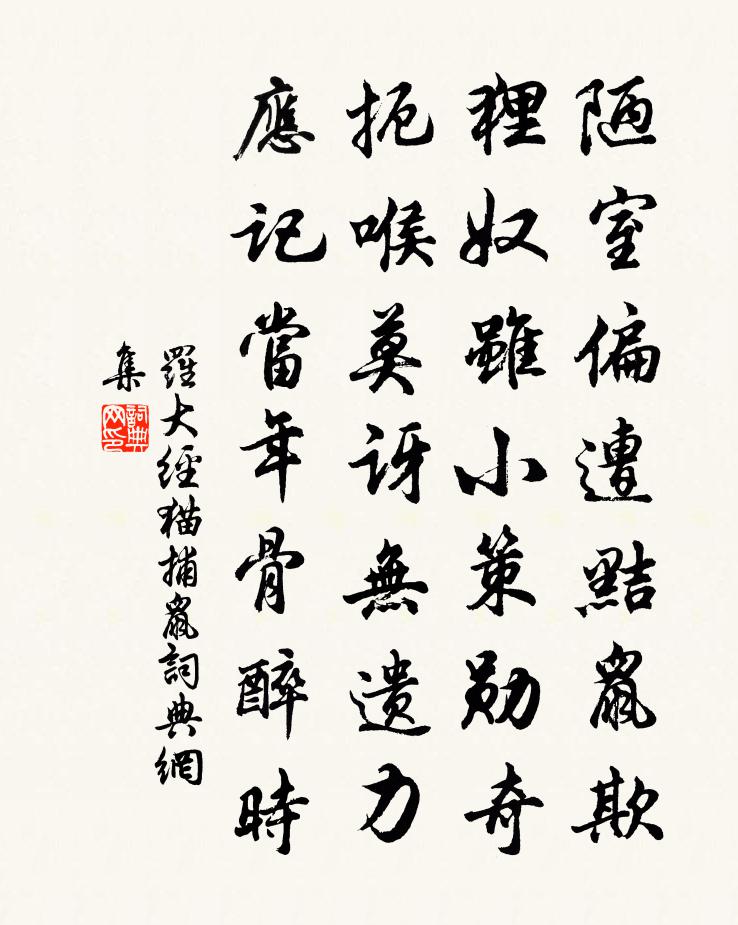 陋室偏遭黠鼠欺
狸奴雖小策勋奇
扼喉莫訝無遗力
應记當年骨醉時
羅大經猫捕鼠詞典網
集
詞典
网印